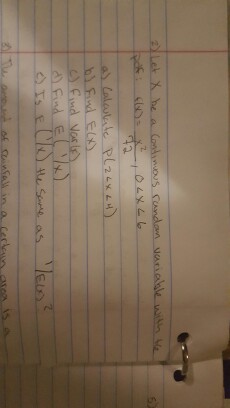 2) Let X be a continuous random variable with the
pdf: f(x) = x²/72, 0<x<6
a) Calculate P(2<x<4)
b) Find E(x)
c) Find Var(x)
d) Find E(1/x)
e) Is E(1/x) the same as 1/E(x)?
The amount of rainfall in a certain area is a